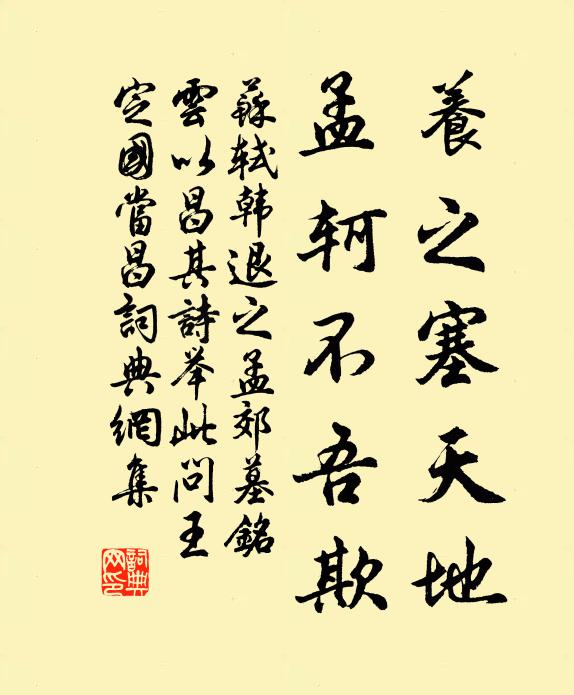 養之塞天地
孟軻不吾欺
蘇軾韩退之孟郊墓銘
雲以昌其詩举此问王
定國當昌詞典網集
詞典网印